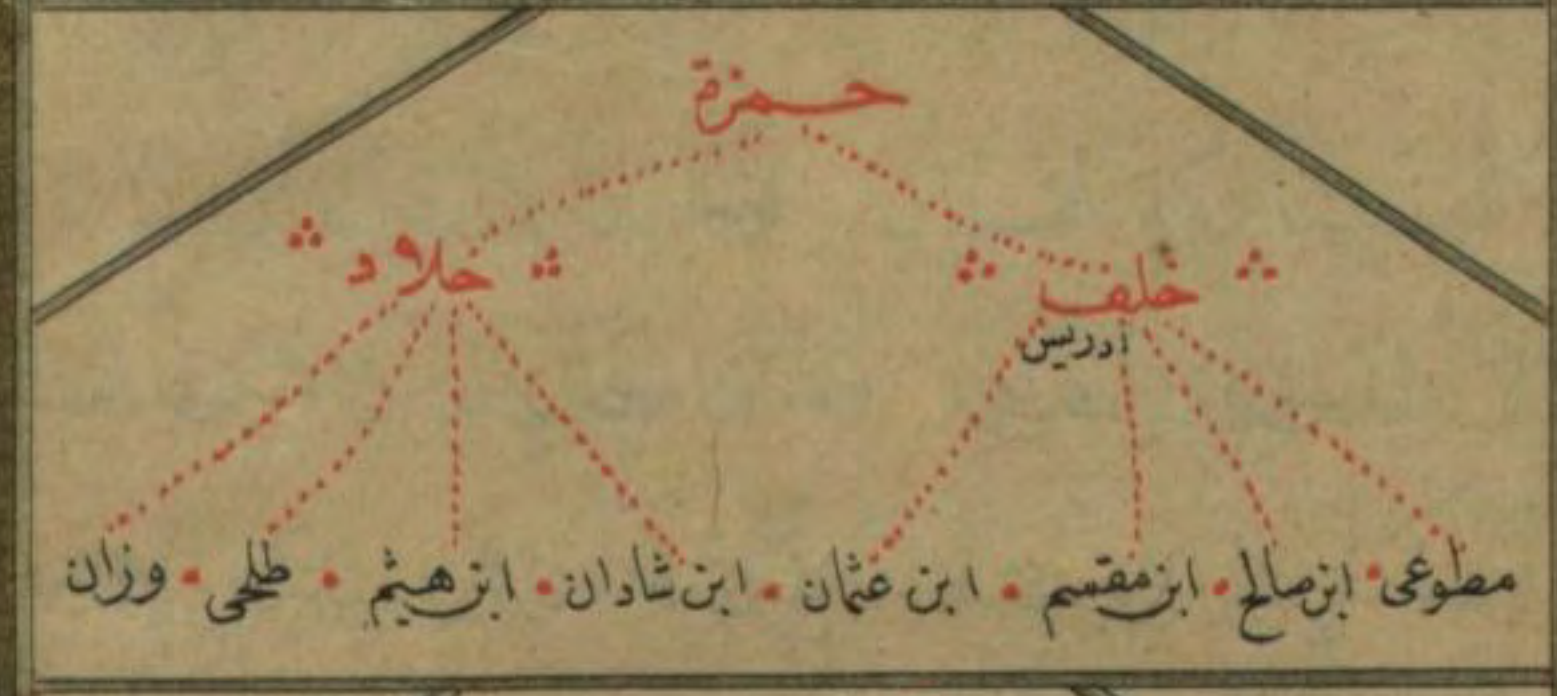 حمزة
خلف خلاد
ادريس
مطوعى ابن صالح ابن مقسم ابن عثمان ابن شادان ابن هيثم طلحى وزان